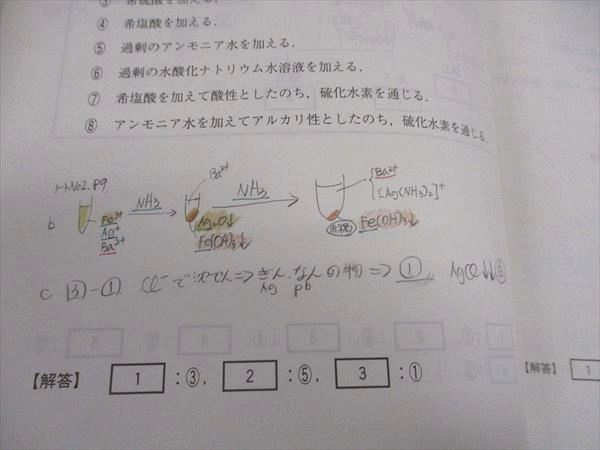 ③ 希硫酸を加える.
④ 希塩酸を加える.
⑤ 過剰のアンモニア水を加える.
⑥ 過剰の水酸化ナトリウム水溶液を加える.
⑦ 希塩酸を加えて酸性としたのち, 硫化水素を通じる.
⑧ アンモニア水を加えてアルカリ性としたのち, 硫化水素を通じる.
ノートNo2. P9.
b Fe³⁺ Ag⁺ Ba²⁺ NH₃ Ba²⁺ Ag₂O↓ Fe(OH)₃↓ NH₃ Ba²⁺ [Ag(NH₃)₂]⁺ 赤褐 Fe(OH)₃↓
c 3-① Cl⁻で沈でん⇒ぎん.なんの物⇒① AgCl↓
Ag Pb
【解答】 1 :③, 2 :⑤, 3 :①
【解答】 1